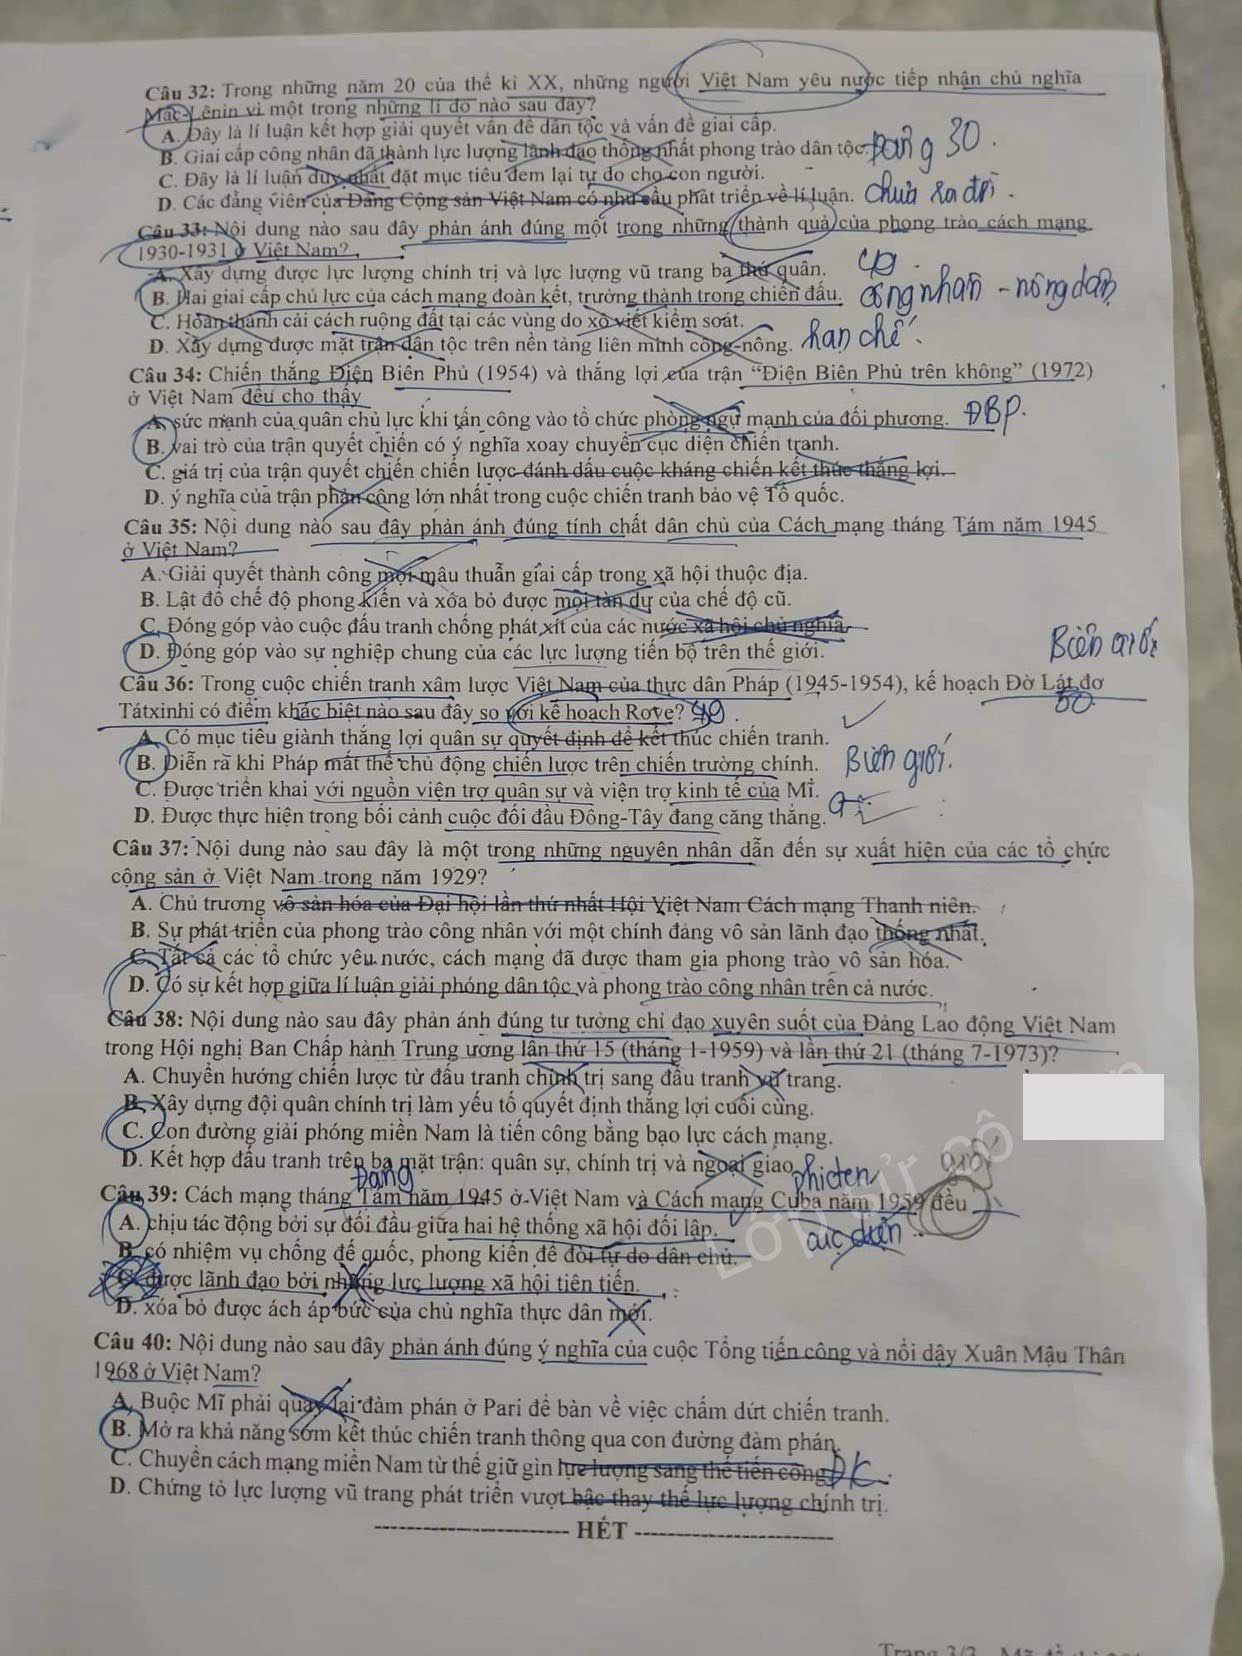 Câu 32: Trong những năm 20 của thế kỉ XX, những người Việt Nam yêu nước tiếp nhận chủ nghĩa
Mác-Lênin vì một trong những lí do nào sau đây?
A. Đây là lí luận kết hợp giải quyết vấn đề dân tộc và vấn đề giai cấp.
B. Giai cấp công nhân đã thành lực lượng lãnh đạo thống nhất phong trào dân tộc. Đảng 30.
C. Đây là lí luận duy nhất đặt mục tiêu đem lại tự do cho con người.
D. Các đảng viên của Đảng Cộng sản Việt Nam có nhu cầu phát triển về lí luận. chưa ra đời.
Câu 33: Nội dung nào sau đây phản ánh đúng một trong những thành quả của phong trào cách mạng
1930-1931 ở Việt Nam?
A. Xây dựng được lực lượng chính trị và lực lượng vũ trang ba thứ quân.
B. Hai giai cấp chủ lực của cách mạng đoàn kết, trưởng thành trong chiến đấu. công nhân - nông dân
C. Hoàn thành cải cách ruộng đất tại các vùng do xô viết kiểm soát.
D. Xây dựng được mặt trận dân tộc trên nền tảng liên minh công-nông. hạn chế.
Câu 34: Chiến thắng Điện Biên Phủ (1954) và thắng lợi của trận “Điện Biên Phủ trên không” (1972)
ở Việt Nam đều cho thấy
A. sức mạnh của quân chủ lực khi tấn công vào tổ chức phòng ngự mạnh của đối phương. ĐBP.
B. vai trò của trận quyết chiến có ý nghĩa xoay chuyển cục diện chiến tranh.
C. giá trị của trận quyết chiến chiến lược đánh dấu cuộc kháng chiến kết thúc thắng lợi.
D. ý nghĩa của trận phản công lớn nhất trong cuộc chiến tranh bảo vệ Tổ quốc.
Câu 35: Nội dung nào sau đây phản ánh đúng tính chất dân chủ của Cách mạng tháng Tám năm 1945
ở Việt Nam?
A. Giải quyết thành công mọi mâu thuẫn giai cấp trong xã hội thuộc địa.
B. Lật đổ chế độ phong kiến và xóa bỏ được mọi tàn dư của chế độ cũ.
C. Đóng góp vào cuộc đấu tranh chống phát xít của các nước xã hội chủ nghĩa.
D. Đóng góp vào sự nghiệp chung của các lực lượng tiến bộ trên thế giới.
Biên giới
Câu 36: Trong cuộc chiến tranh xâm lược Việt Nam của thực dân Pháp (1945-1954), kế hoạch Đờ Lát đơ
50.
Tátxinhi có điểm khác biệt nào sau đây so với kế hoạch Rơve? 49.
A. Có mục tiêu giành thắng lợi quân sự quyết định để kết thúc chiến tranh.
B. Diễn ra khi Pháp mất thế chủ động chiến lược trên chiến trường chính. Biên giới.
C. Được triển khai với nguồn viện trợ quân sự và viện trợ kinh tế của Mĩ.
D. Được thực hiện trong bối cảnh cuộc đối đầu Đông-Tây đang căng thẳng.
Câu 37: Nội dung nào sau đây là một trong những nguyên nhân dẫn đến sự xuất hiện của các tổ chức
cộng sản ở Việt Nam trong năm 1929?
A. Chủ trương vô sản hóa của Đại hội lần thứ nhất Hội Việt Nam Cách mạng Thanh niên.
B. Sự phát triển của phong trào công nhân với một chính đảng vô sản lãnh đạo thống nhất.
C. Tất cả các tổ chức yêu nước, cách mạng đã được tham gia phong trào vô sản hóa.
D. Có sự kết hợp giữa lí luận giải phóng dân tộc và phong trào công nhân trên cả nước.
Câu 38: Nội dung nào sau đây phản ánh đúng tư tưởng chỉ đạo xuyên suốt của Đảng Lao động Việt Nam
trong Hội nghị Ban Chấp hành Trung ương lần thứ 15 (tháng 1-1959) và lần thứ 21 (tháng 7-1973)?
A. Chuyển hướng chiến lược từ đấu tranh chính trị sang đấu tranh vũ trang.
B. Xây dựng đội quân chính trị làm yếu tố quyết định thắng lợi cuối cùng.
C. Con đường giải phóng miền Nam là tiến công bằng bạo lực cách mạng.
D. Kết hợp đấu tranh trên ba mặt trận: quân sự, chính trị và ngoại giao.
Đảng
Câu 39: Cách mạng tháng Tám năm 1945 ở Việt Nam và Cách mạng Cuba năm 1959 đều
A. chịu tác động bởi sự đối đầu giữa hai hệ thống xã hội đối lập. cục diện
B. có nhiệm vụ chống đế quốc, phong kiến để đòi tự do dân chủ.
C. được lãnh đạo bởi những lực lượng xã hội tiên tiến.
D. xóa bỏ được ách áp bức của chủ nghĩa thực dân mới.
Lớp sử cô
Câu 40: Nội dung nào sau đây phản ánh đúng ý nghĩa của cuộc Tổng tiến công và nổi dậy Xuân Mậu Thân
1968 ở Việt Nam?
A. Buộc Mĩ phải quay lại đàm phán ở Pari để bàn về việc chấm dứt chiến tranh.
B. Mở ra khả năng sớm kết thúc chiến tranh thông qua con đường đàm phán.
C. Chuyển cách mạng miền Nam từ thế giữ gìn lực lượng sang thế tiến công. ĐK.
D. Chứng tỏ lực lượng vũ trang phát triển vượt bậc thay thế lực lượng chính trị.
HẾT